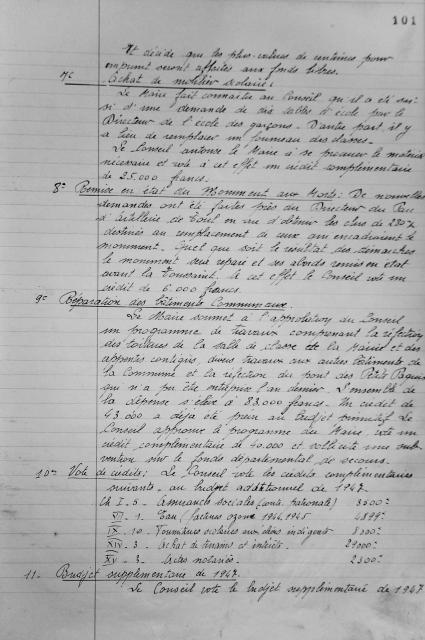 101
Et décide que les plus-values de centimes pour
emprunt seront affectées aux fonds libres.
7° Achat de mobilier scolaire:
Le Maire fait connaître au Conseil qu'il a été sai-
si d'une demande de dix tables d'école par le
Directeur de l'école des garçons. D'autre part, il y
a lieu de remplacer un fourneau des classes.
Le Conseil autorise le Maire à se procurer le matériel
nécessaire et vote à cet effet un crédit complémentaire
de 25.000 francs.
8° Remise en état du Monument aux Morts: De nouvelles
demandes ont été faites près du Directeur du Parc
d'Artillerie de Toul en vue d'obtenir les obus de
destinés au remplacement de ceux qui encadraient le
monument. Quel que soit le résultat des démarches
le monument sera réparé et ses abords remis en état
avant la Toussaint. A cet effet le Conseil vote un
crédit de 6.000 francs.
9° Réparation des bâtiments Communaux.
Le Maire soumet à l'approbation du Conseil
un programme de travaux comprenant la réfection
des toitures de la salle de classe et de la mairie et des
appentis contigus, divers travaux aux autres bâtiments de
la Commune et la réfection du pont des Petits
qui n'a pu être entreprise l'an dernier. L'ensemble de
la dépense s'élève à 83.000 francs. Un crédit de
43.000 a déjà été prévu au budget primitif. Le
Conseil approuve le programme du Maire, vote un
crédit complémentaire de 40.000 et sollicite une sub-
vention sur le fonds départemental de secours.
10° Vote de crédits: Le Conseil vote les crédits complémentaires
suivants, au budget additionnel de 1947.
Ch I. 5 - Assurances sociales (cont. patronale) 3500-
VI - 1. Eau (factures ozone 1944, 1945 4899-
IX - 10. Fournitures scolaires aux élèves indigents 3.000-
XIV - 3 - Achat de terrains et intérêts. 29000-
XV - 3. Actes notariés. 2500-
11. Budget supplémentaire de 1947.
Le Conseil vote le budget supplémentaire de 1947